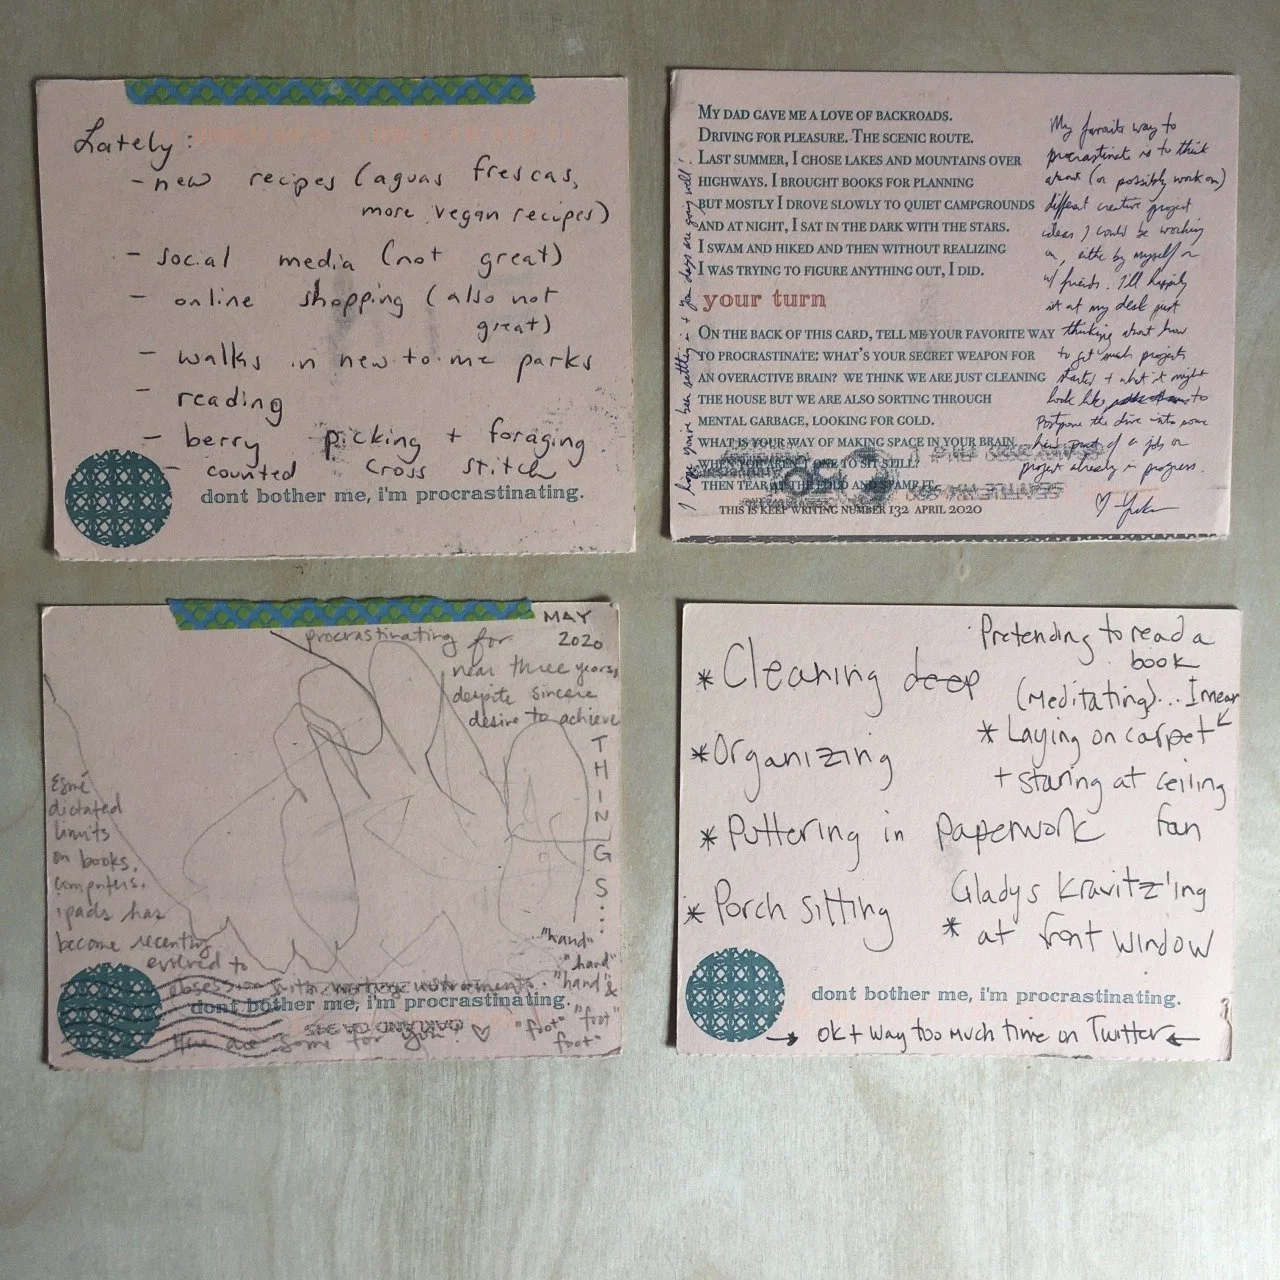 Lately:
- new recipes (aguas frescas,
more vegan recipes)
- social media (not great)
- online shopping (also not
great)
- walks in new-to-me parks
- reading
- berry picking + foraging
- counted cross stitch
dont bother me, i'm procrastinating.
MY DAD GAVE ME A LOVE OF BACKROADS.
DRIVING FOR PLEASURE. THE SCENIC ROUTE.
LAST SUMMER, I CHOSE LAKES AND MOUNTAINS OVER
HIGHWAYS. I BROUGHT BOOKS FOR PLANNING
BUT MOSTLY I DROVE SLOWLY TO QUIET CAMPGROUNDS
AND AT NIGHT, I SAT IN THE DARK WITH THE STARS.
I SWAM AND HIKED AND THEN WITHOUT REALIZING
I WAS TRYING TO FIGURE ANYTHING OUT, I DID.
your turn
ON THE BACK OF THIS CARD, TELL ME YOUR FAVORITE WAY
TO PROCRASTINATE: WHAT'S YOUR SECRET WEAPON FOR
AN OVERACTIVE BRAIN? WE THINK WE ARE JUST CLEANING
THE HOUSE BUT WE ARE ALSO SORTING THROUGH
MENTAL GARBAGE, LOOKING FOR GOLD.
WHAT IS YOUR WAY OF MAKING SPACE IN YOUR BRAIN
WHEN YOU AREN'T ONE TO SIT STILL?
THEN TEAR AT THE FOLD AND STAMP IT.
THIS IS KEEP WRITING NUMBER 132 APRIL 2020
My favorite way to
procrastinate is to think
about (or possibly work on)
different creative project
ideas I could be working
on, either by myself or
w/ friends. I'll happily
sit at my desk just
thinking about how
to get such projects
started + what it might
look like to
postpone the dive into some
new part of a job or
project already in progress.
I hope you've been settling in + your days are going well!
MAY
2020
procrastinating for
near three years,
despite sincere
desire to achieve
THINGS...
Esmé
dictated
limits
on books,
computers,
ipads has
become recently
evolved to
obsession with writing instruments.
Here are some for you! ♡
"hand"
"hand"
"hand" &
"foot" "foot"
foot"
dont bother me, i'm procrastinating.
OAKLAND CA 945
* Cleaning deep
* Organizing
* Puttering in paperwork
* Porch sitting
Pretending to read a
book
(meditating)... I mean
* Laying on carpet
+ staring at ceiling
fan
Gladys Kravitz'ing
* at front window
dont bother me, i'm procrastinating.
→ ok + way too much time on Twitter ←